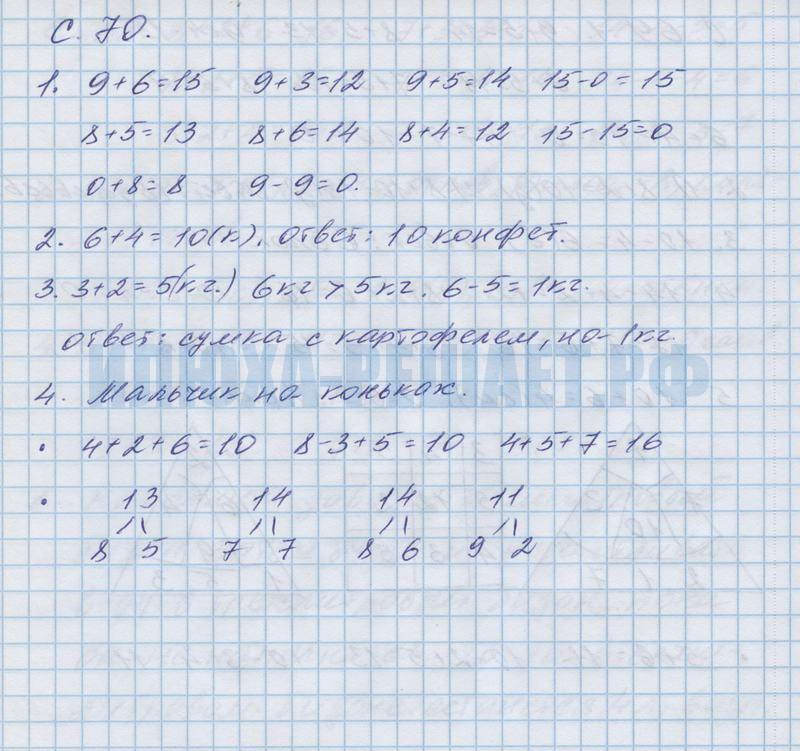 С. 70.
1. 9+6=15 9+3=12 9+5=14 15-0=15
8+5=13 8+6=14 8+4=12 15-15=0
0+8=8 9-9=0.
2. 6+4=10(к). ответ: 10 конфет.
3. 3+2=5(кг.) 6кг > 5кг. 6-5=1кг.
ответ: сумка с картофелем, на 1кг.
ИЛЮХА-РЕШАЕТ.РФ
4. Мальчик на коньках.
• 4+2+6=10 8-3+5=10 4+5+7=16
• 13 14 14 11
8 5 7 7 8 6 9 2